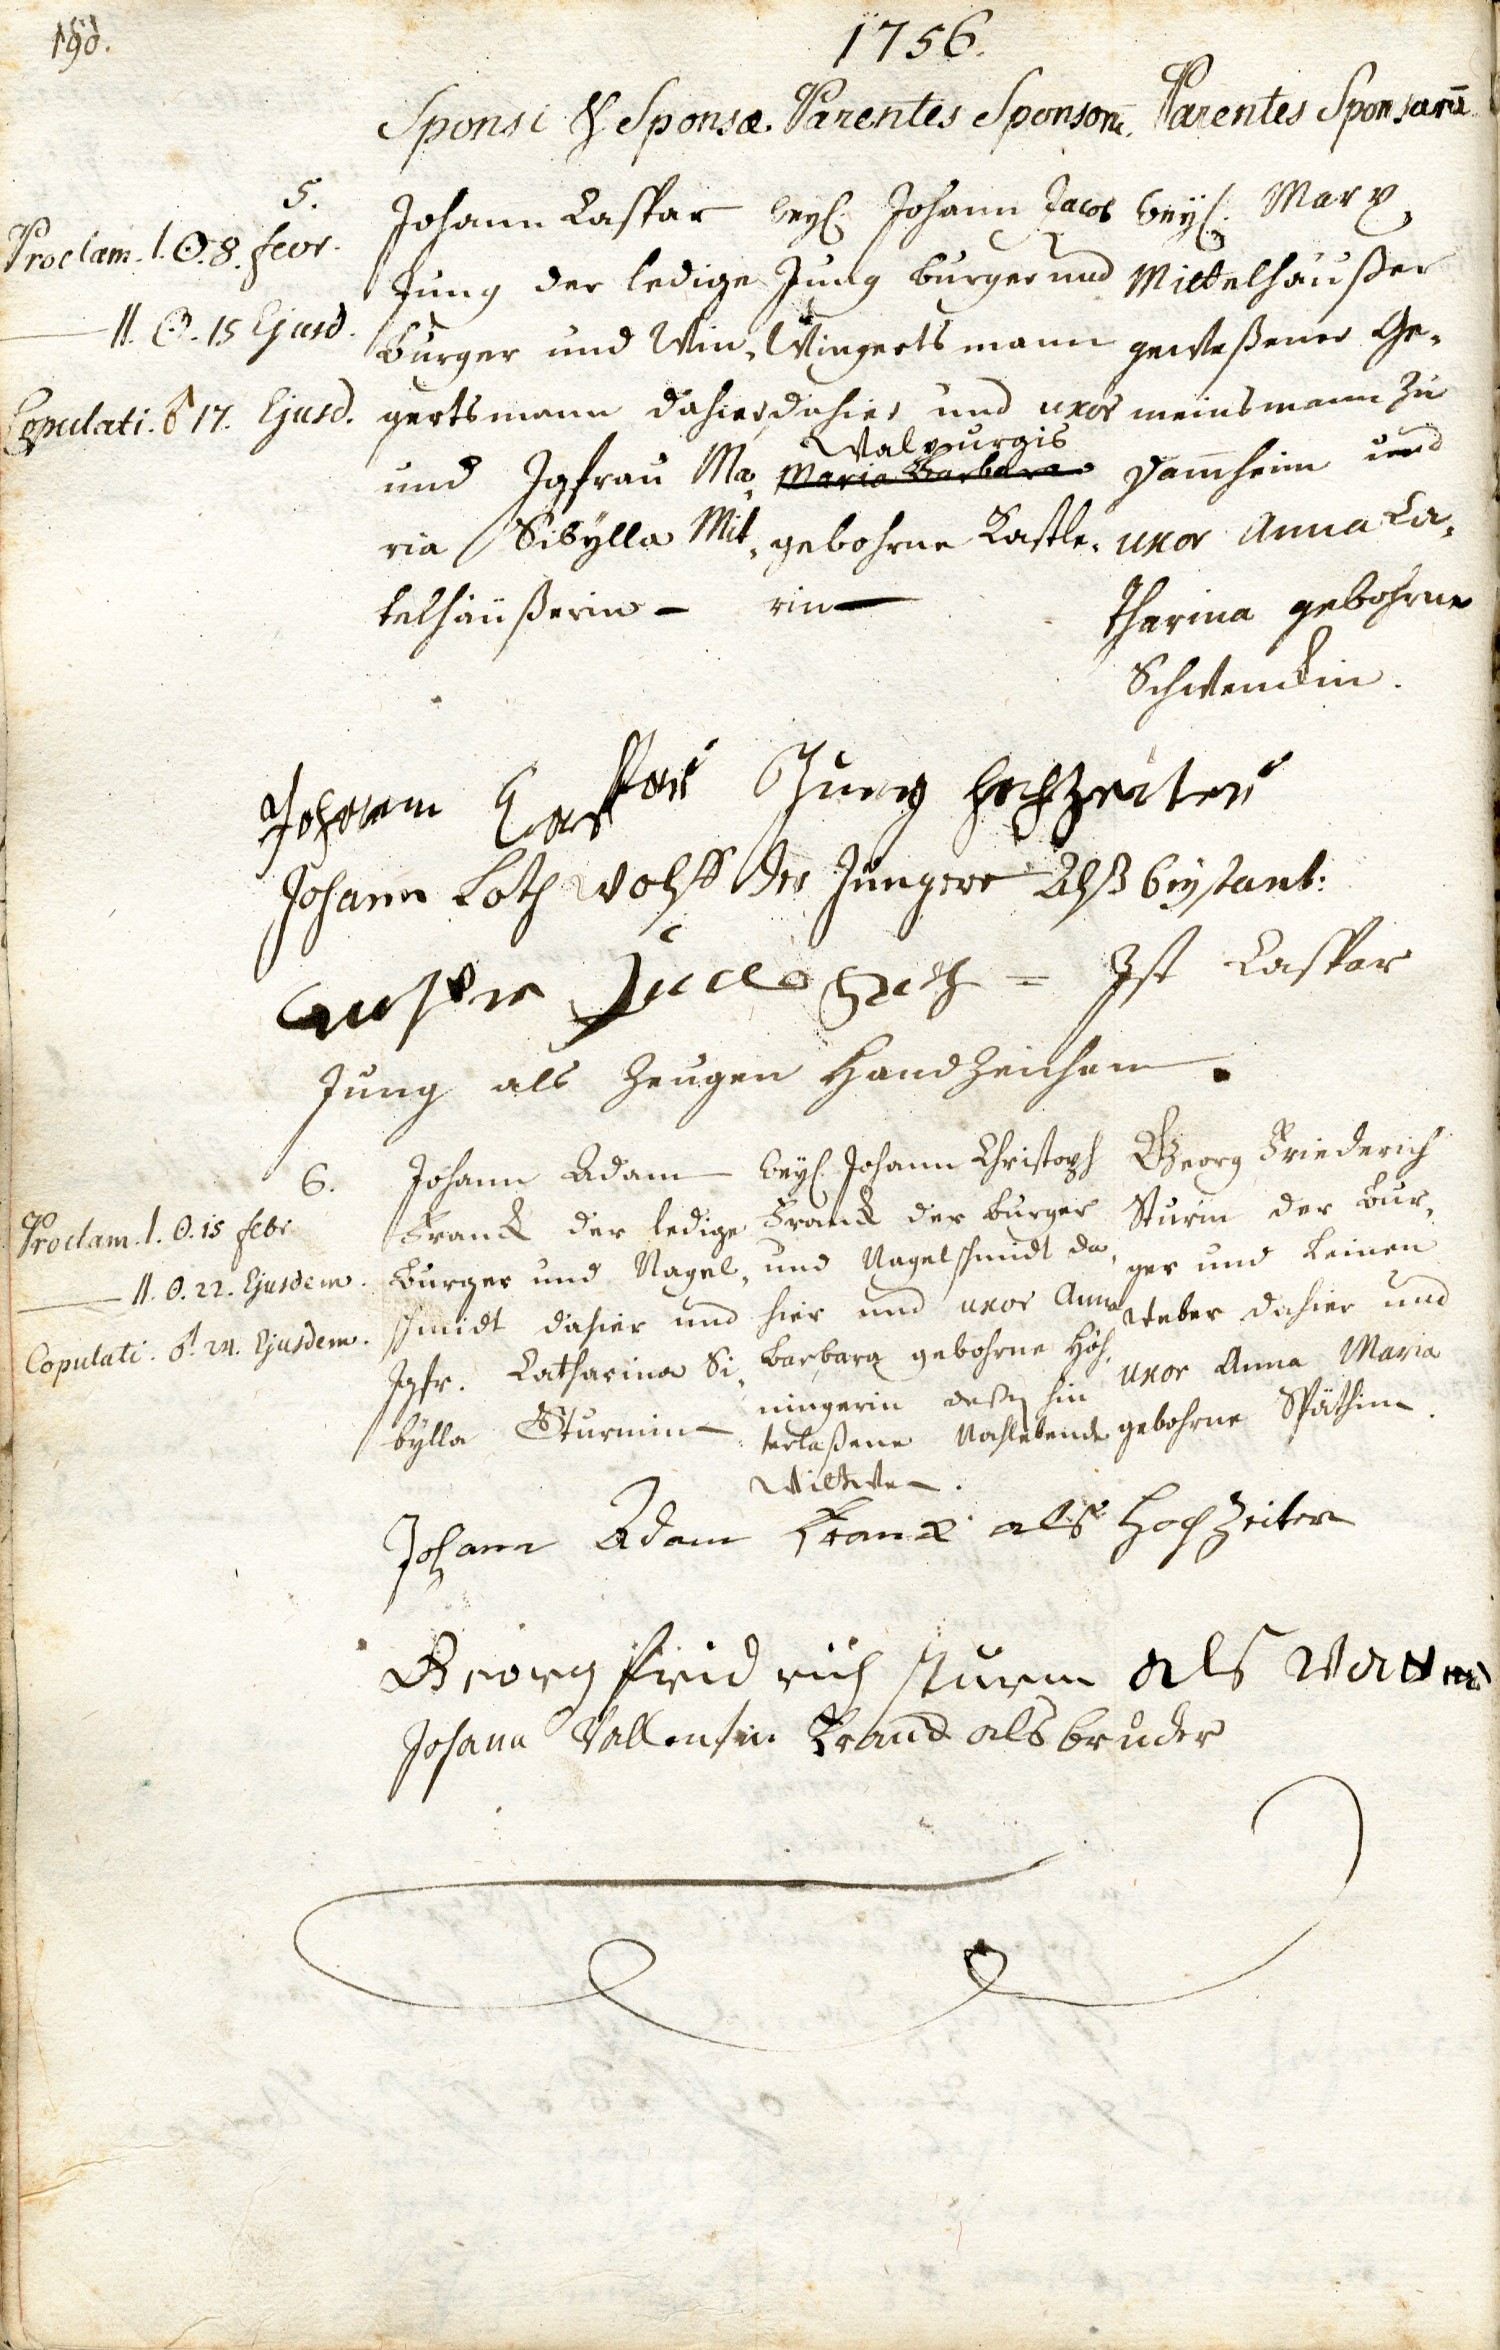 190.
1756.
Sponsi & Sponsæ. Parentes Sponsorũ. Parentes Sponsarũ.
5.
Proclam. 1. ☉. 8. febr.
— 11. ☉. 15 Ejusd.
Copulati. ♂ 17. Ejusd.
Johann Caspar
Jung der ledige
Burger und Win-
gertsmann dahier
und Jgfrau Ma-
ria Sibylla Mit-
telhäußerin —
weyl. Johann Jacob
Jung burger und
Wingertsmann
dahier und uxor
Walpurgis
Maria Barbara
gebohrne Castle-
rin —
weyl. Marx
Mittelhäußer
geweßener Ge-
meinsmann zu
Dam̄heim und
uxor Anna Ca-
tharina gebohrne
Schwenckin.
Johann Caspar Jung hochzeiter
Johann Loth Wolff der Jüngere Alß beystant:
= Ist Caspar
Jung als Zeugen Handzeichen.
6.
Proclam. 1. ☉. 15 febr
— 11. ☉. 22. Ejusdem.
Copulati. ♂. 24. Ejusdem.
Johann Adam
Franck der ledige
Burger und Nagel-
schmidt dahier und
Jgfr. Catharina Si-
bylla Sturmin —
weyl. Johann Christoph
Franck der burger
und Nagelschmidt da-
hier und uxor Anna
Barbara gebohrne Höh-
ningerin deßen hin
terlaßene Nachlebende
Wittwe.
Georg Friederich
Sturm der Bur-
ger und Leinen
Weber dahier und
uxor Anna Maria
gebohrne Späthin.
Johann Adam Franck alß Hochzeiter
Georg fridrich sturm als vatter
Johann Vallentin Franck als bruder